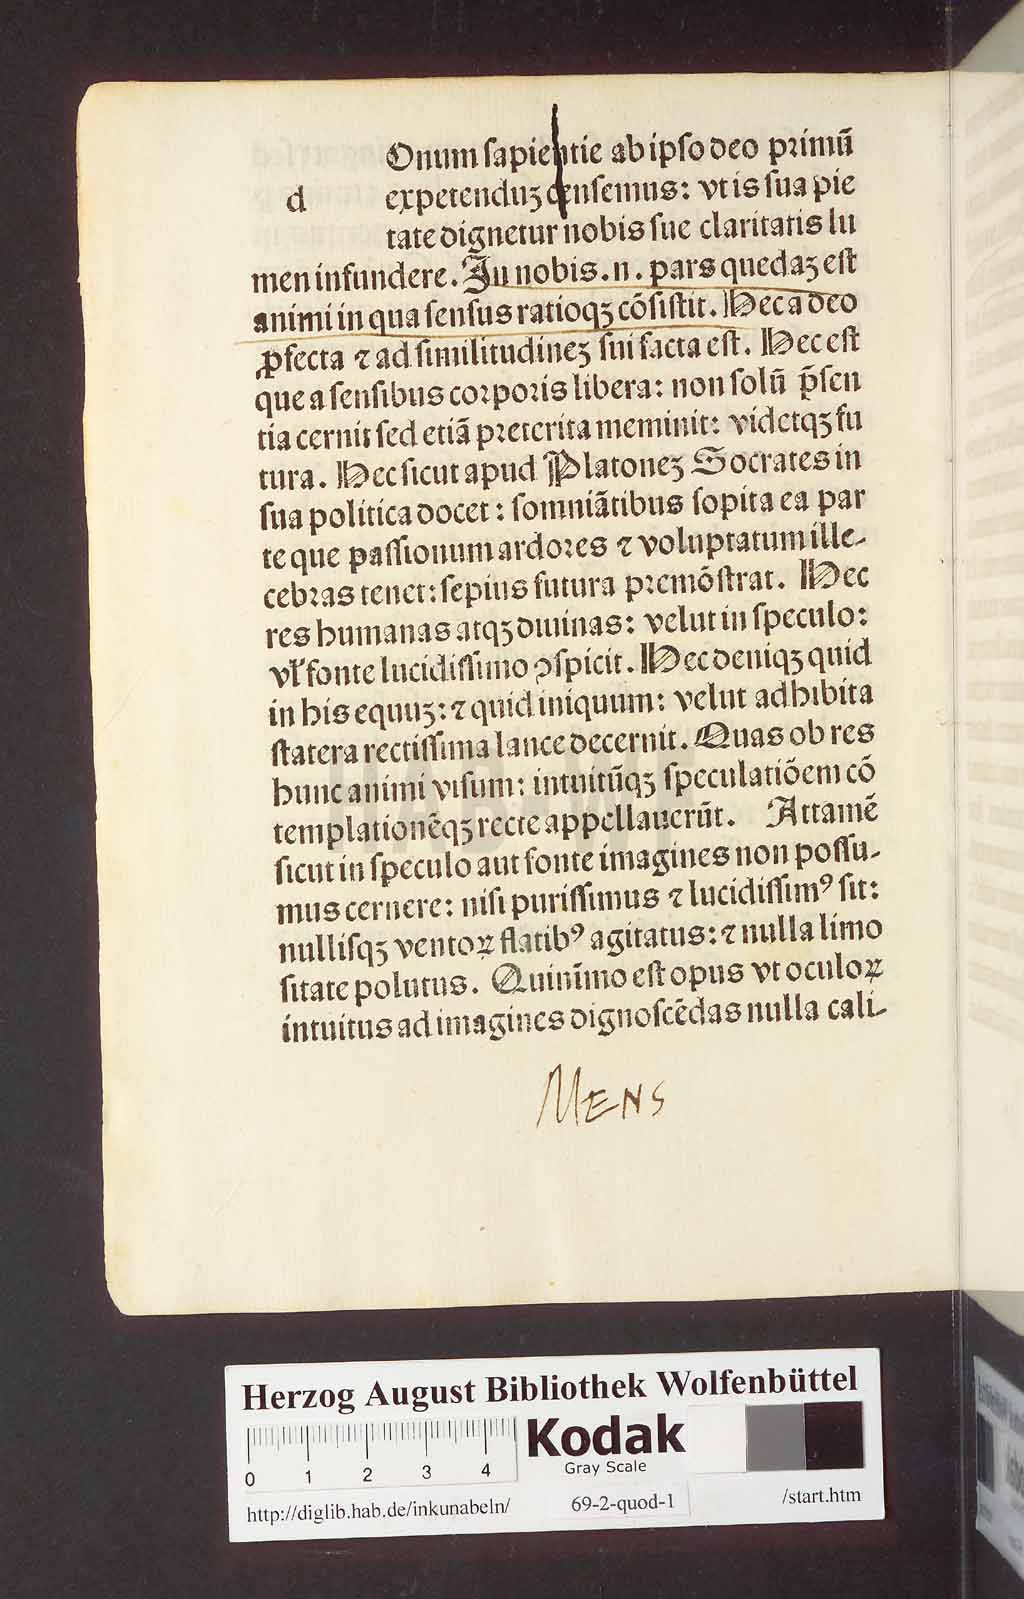 Onum sapientie ab ipso deo primū
d
expetenduȝ censemus: vt is sua pie
tate dignetur nobis sue claritatis lu
men infundere. In nobis .n. pars quedaȝ est
animi in qua sensus ratioqȝ cōsistit. Hec a deo
ꝓfecta ⁊ ad similitudineȝ sui facta est. Hec est
que a sensibus corporis libera: non solū p̄sen
tia cernit sed etiā preterita meminit: videtqȝ fu
tura. Hec sicut apud Platoneȝ Socrates in
sua politica docet: somniātibus sopita ea par
te que passionum ardores ⁊ voluptatum ille-
cebras tenet: sepius futura premōstrat. Hec
res humanas atqȝ diuinas: velut in speculo:
vl' fonte lucidissimo ꝯspicit. Hec deniqȝ quid
in his equuȝ: ⁊ quid iniquum: velut adhibita
statera rectissima lance decernit. Quas ob res
hunc animi visum: intuitūqȝ speculatiōem cō
templationēqȝ recte appellauerūt. Attamē
sicut in speculo aut fonte imagines non possu-
mus cernere: nisi purissimus ⁊ lucidissimꝰ sit:
nullisqȝ ventoꝝ flatibꝰ agitatus: ⁊ nulla limo
sitate polutus. Quinīmo est opus vt oculoꝝ
intuitus ad imagines dignoscēdas nulla cali-
MENS
HAB WF
Herzog August Bibliothek Wolfenbüttel
0 1 2 3 4
Kodak
Gray Scale
http://diglib.hab.de/inkunabeln/ 69-2-quod-1 /start.htm